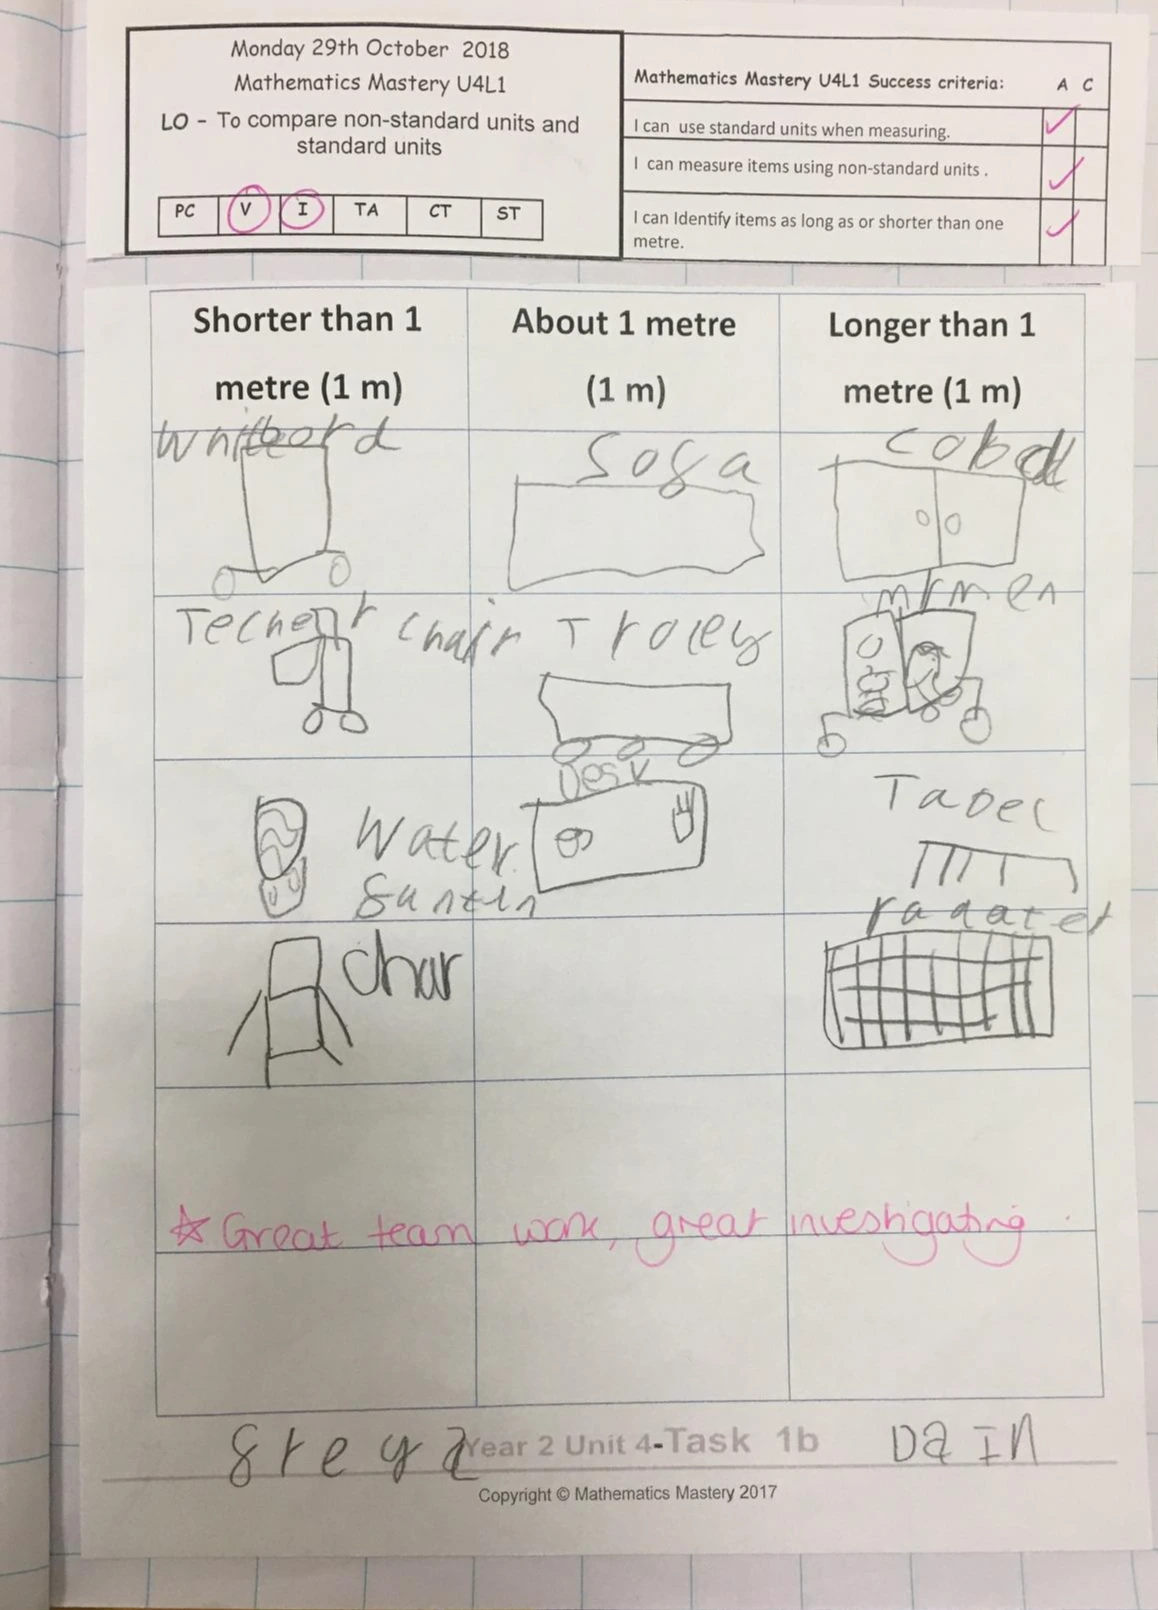 Monday 29th October 2018
Mathematics Mastery U4L1
LO - To compare non-standard units and
standard units
PC V I TA CT ST
Mathematics Mastery U4L1 Success criteria: A C
I can use standard units when measuring.
I can measure items using non-standard units .
I can Identify items as long as or shorter than one
metre.
Shorter than 1
metre (1 m)
About 1 metre
(1 m)
Longer than 1
metre (1 m)
sofa
Techer chair
Troley
Desk
Water
Tabel
char
☆ Great team work, great investigating.
Year 2 Unit 4-Task 1b
Copyright © Mathematics Mastery 2017